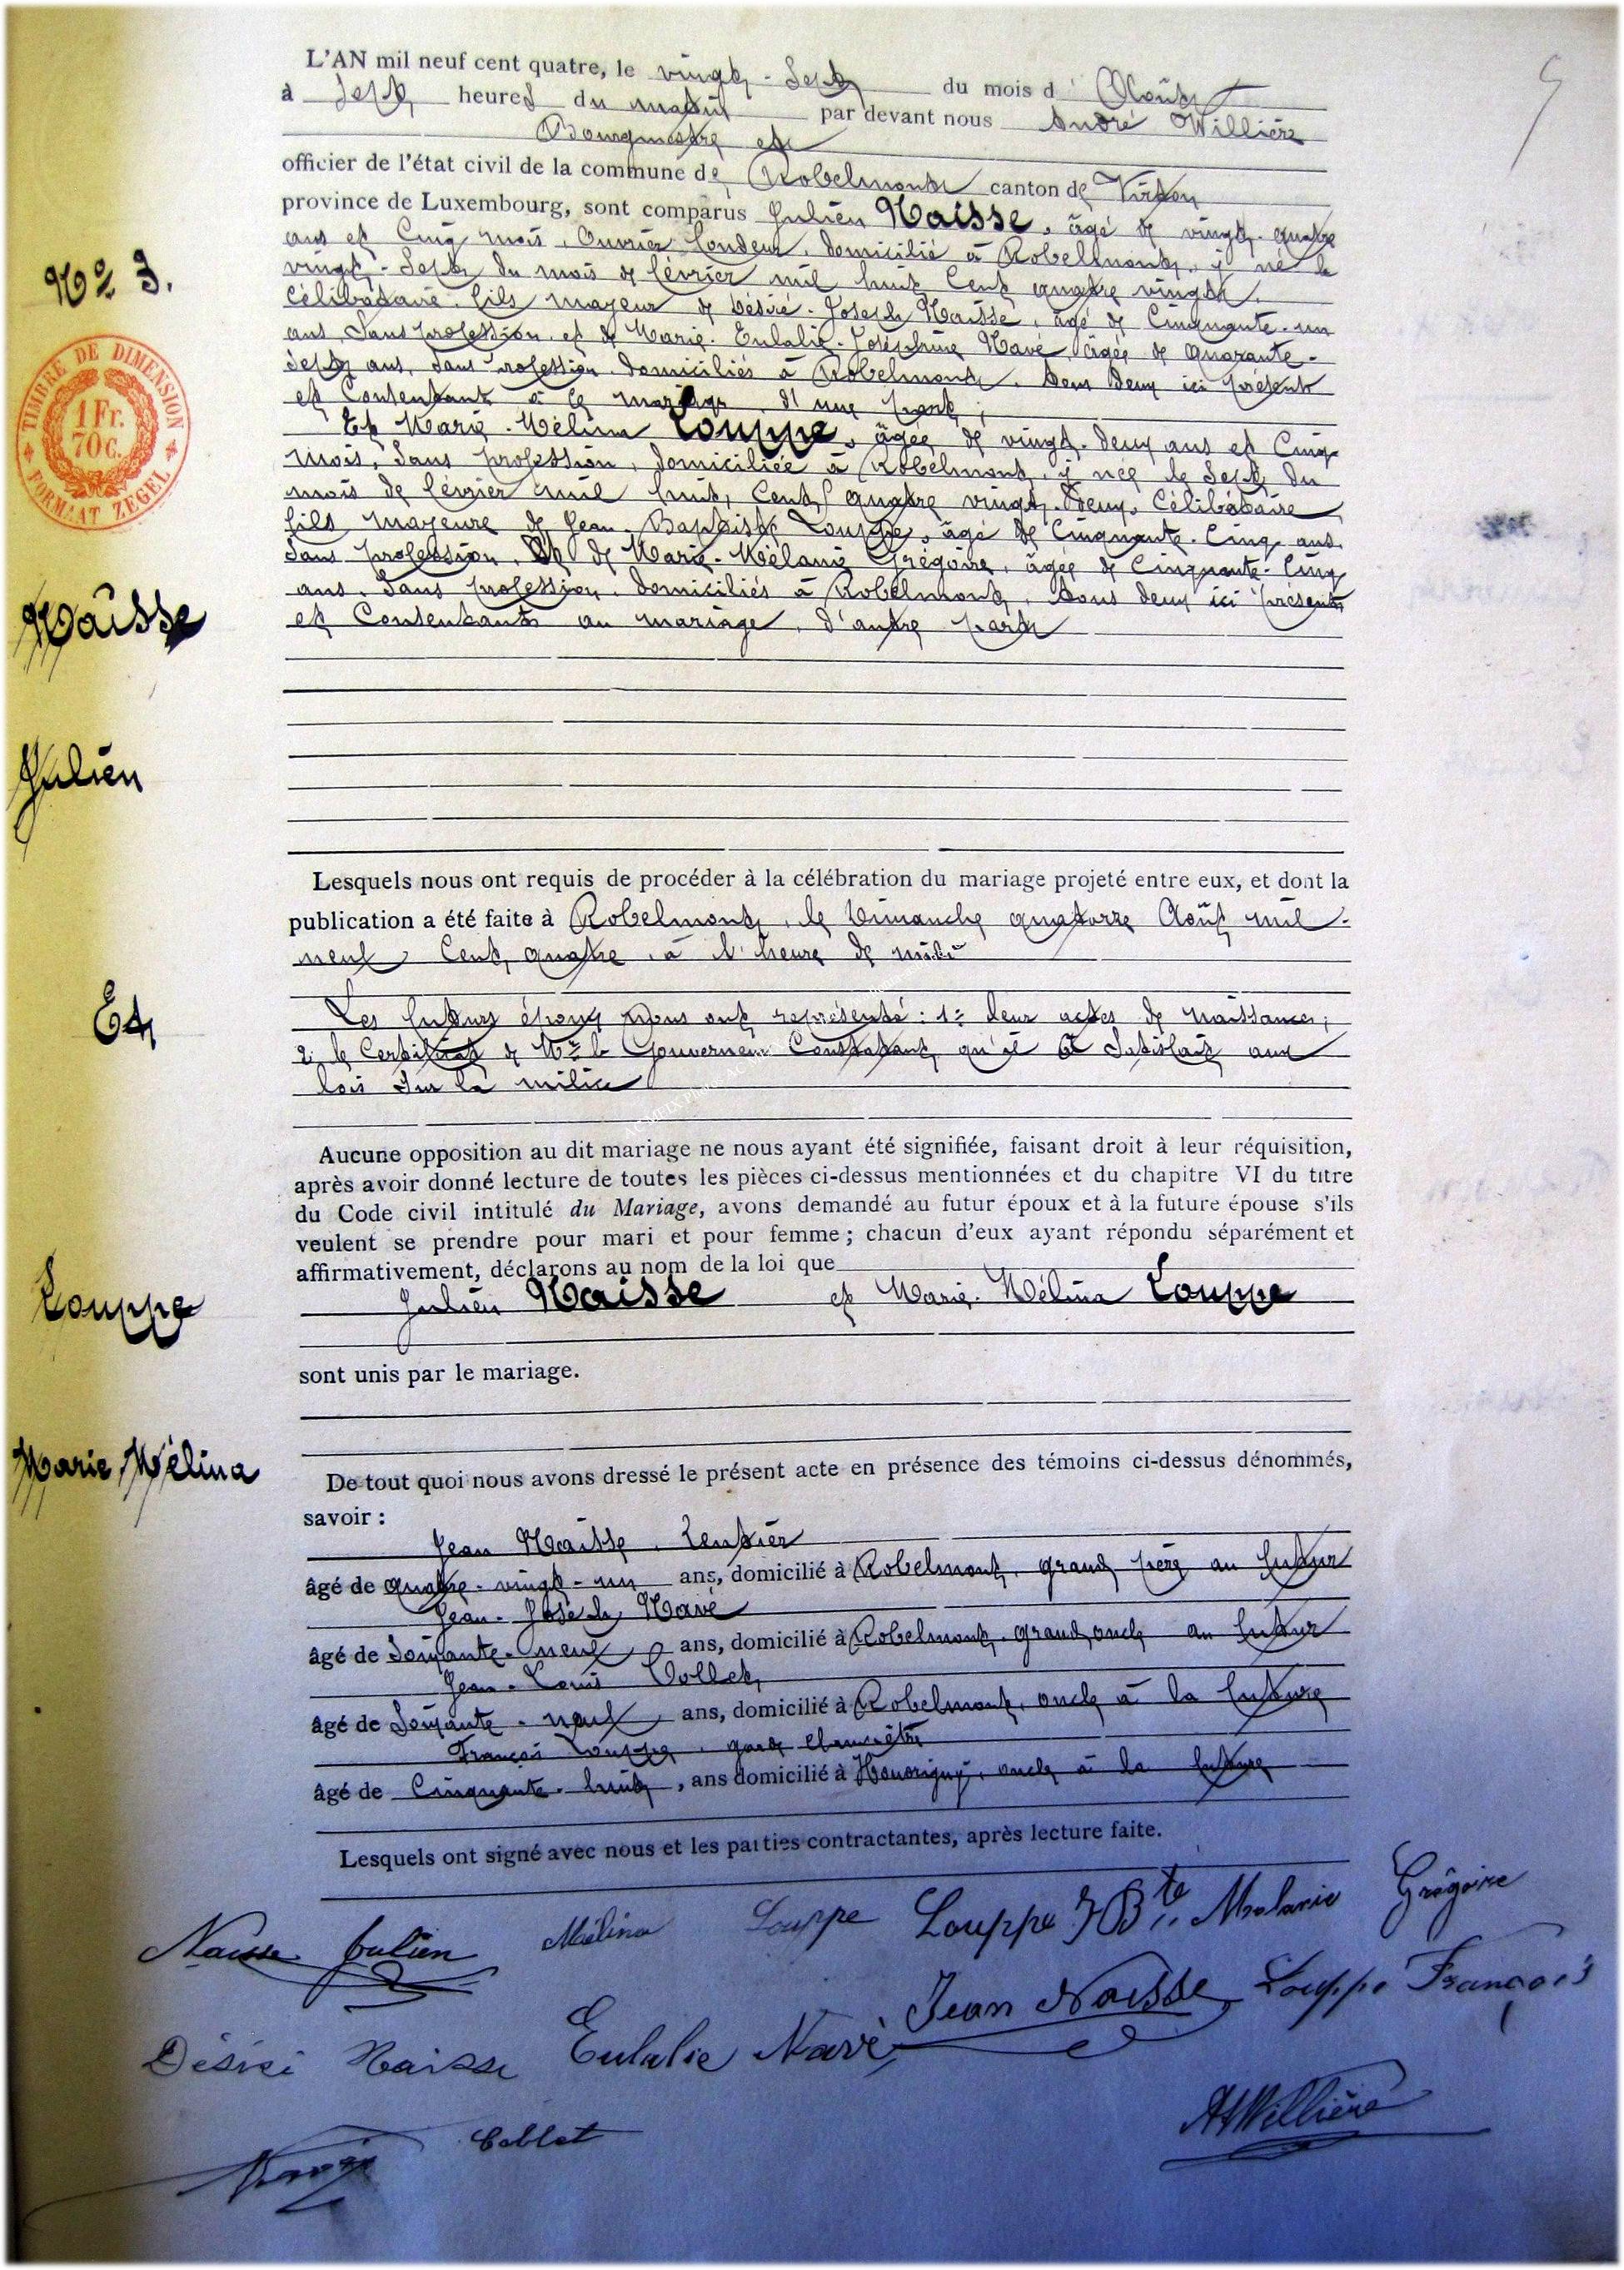 L'AN mil neuf cent quatre, le vingt-sept du mois d'Août
à sept heures du matin par devant nous André Willière
Bourgmestre et
officier de l'état civil de la commune de Robelmont canton de Virton
province de Luxembourg, sont comparus Julien Naisse, âgé de vingt-quatre
ans et Cinq mois, Ouvrier fondeur, domicilié à Robelmont, y né le
vingt-Sept du mois de février mil huit Cent quatre vingt,
Célibataire, fils majeur de Désiré-Joseph Naisse, âgé de Cinquante-un
ans, Sans profession, et de Marie-Eulalie-Joséphine Navé âgée de quarante-
sept ans, sans profession, domiciliés à Robelmont, tous deux ici présents
et Consentant à le mariage, d'une part;
Et Marie-Mélina Louppe, âgée de vingt-deux ans et Cinq
mois, Sans profession, domiciliée à Robelmont, y née le Sept du
mois de février mil huit Cent quatre vingt-Deux, Célibataire,
fille majeure de Jean-Baptiste Louppe, âgé de Cinquante-Cinq ans,
Sans profession, Et de Marie-Mélanie Grégoire, âgée de Cinquante-Cinq
ans, Sans profession, domiciliés à Robelmont, tous deux ici présents
et Consentants au mariage, d'autre part
Lesquels nous ont requis de procéder à la célébration du mariage projeté entre eux, et dont la
publication a été faite à Robelmont, le Dimanche quatorze Août mil-
neuf Cent quatre, à l'heure de midi
Les futurs époux nous ont représenté: 1° leur actes de naissances;
2° le Certificat de Mr le Gouverneur Constatant qu'il a Satisfait aux
lois sur la milice
Aucune opposition au dit mariage ne nous ayant été signifiée, faisant droit à leur réquisition,
après avoir donné lecture de toutes les pièces ci-dessus mentionnées et du chapitre VI du titre
du Code civil intitulé du Mariage, avons demandé au futur époux et à la future épouse s'ils
veulent se prendre pour mari et pour femme; chacun d'eux ayant répondu séparément et
affirmativement, déclarons au nom de la loi que
Julien Naisse et Marie-Mélina Louppe
sont unis par le mariage.
De tout quoi nous avons dressé le présent acte en présence des témoins ci-dessus dénommés,
savoir:
Jean Naisse, rentier
âgé de quatre-vingt-un ans, domicilié à Robelmont, grand père au futur
Jean-Joseph Navé
âgé de Soixante-neuf ans, domicilié à Robelmont, grand oncle au futur
Jean-Louis Collet
âgé de Soixante-neuf ans, domicilié à Robelmont, oncle à la future
François Louppe, garde champêtre
âgé de Cinquante-huit, ans domicilié à oncle à la future
Lesquels ont signé avec nous et les parties contractantes, après lecture faite.
Naisse Julien Mélina Louppe Louppe J Bte Mélanie Grégoire
Désiré Naisse Eulalie Navé Jean Naisse Louppe François
Navé Collet AWillière
N° 3.
TIMBRE DE DIMENSION
1Fr.
70c.
FORMAAT ZEGEL
Naisse
Julien
Et
Louppe
Marie Mélina